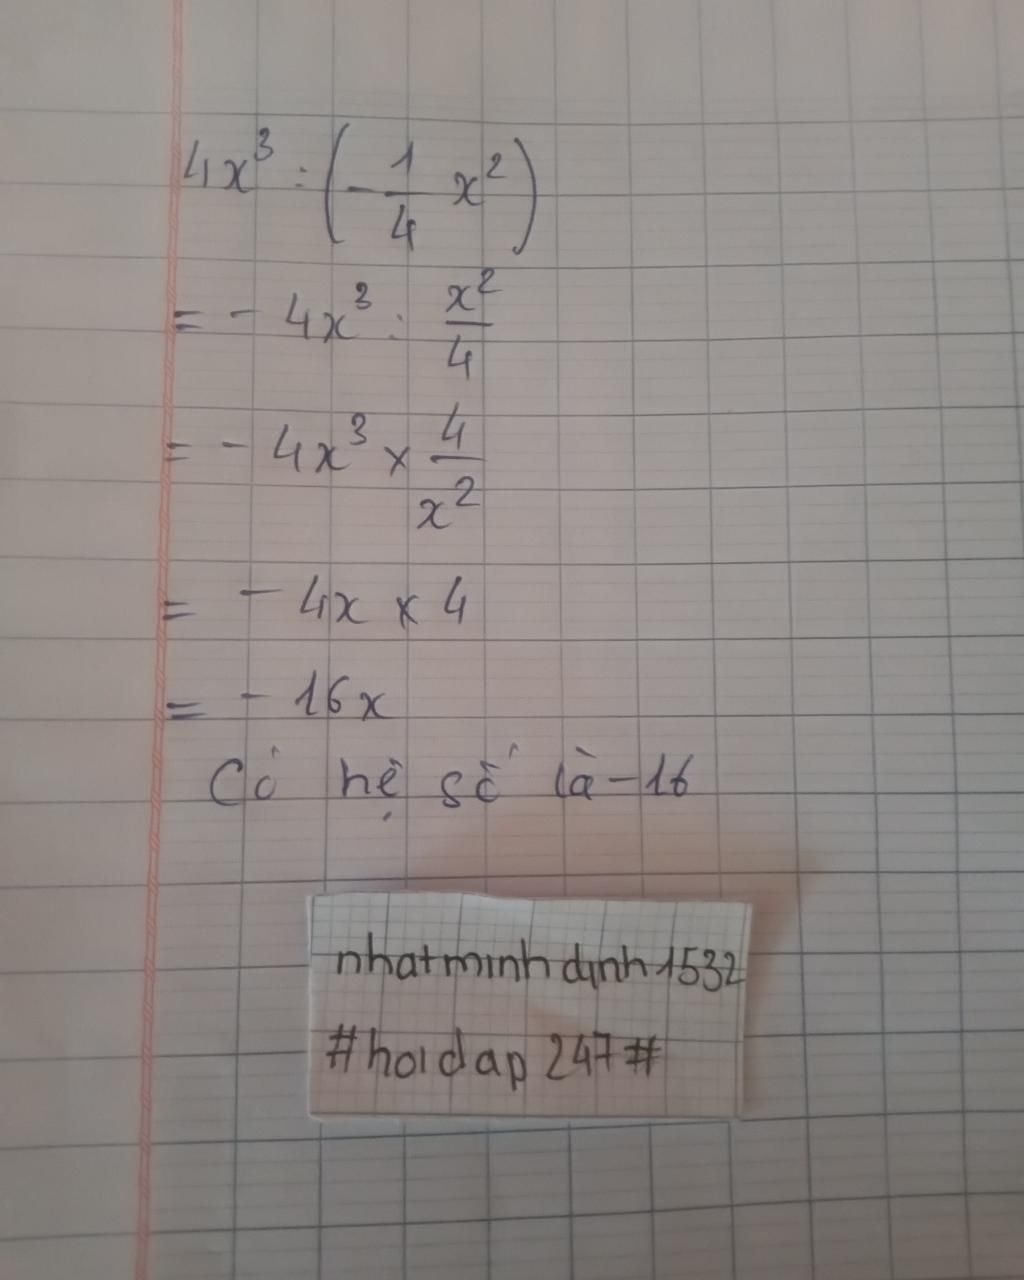 4x³ : (-1/4 x²)
= - 4x³ : x²/4
= - 4x³ × 4/x²
= - 4x × 4
= - 16x
Có hệ số là -16
nhatminhdinh1532
#hoidap247#